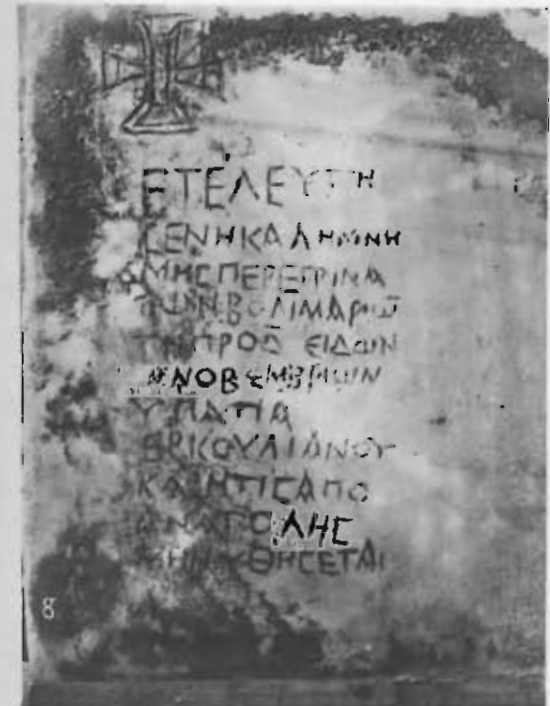 ΕΤΕΛΕΥΤΗ
CΕΝΗΚΑΛΗΜΝΗ
ΜΗCΠΕΡΕΓΡΙΝΑ
ΤΩΝΒΟΛΙΜΑΡΙΩ
ΤΗΠΡΟΔ ΕΙΔΩΝ
ΝΟΒΕΜΒΡΙΩΝ
ΥΠΑΤΙΑ
ΕΡΚΟΥΛΙΑΝΟΥ
ΚΑΙΗΤΙCΑΠΟ
ΑΝΑΤΟΛΗC
ΜΗΝΥΘΗCΕΤΑΙ
8